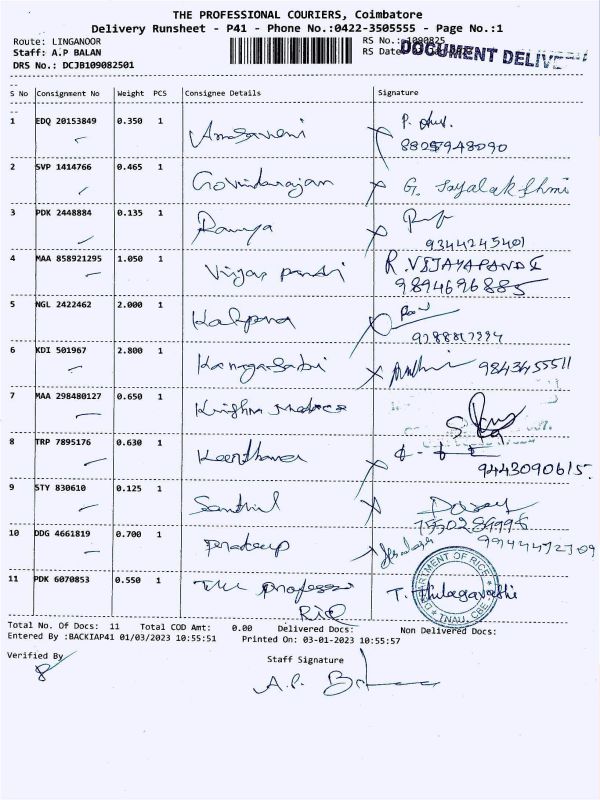 THE PROFESSIONAL COURIERS, Coimbatore
Delivery Runsheet - P41 - Phone No.:0422-3505555 - Page No.:1
Route: LINGANOOR
RS No.:
Staff: A.P BALAN
RS Date
DOCUMENT DELIVE
DRS No.: DCJB109082501
S No Consignment No Weight PCS Consignee Details Signature
1 EDQ 20153849 0.350 1
2 SVP 1414766 0.465 1 Govindarajan G. Jayalakshmi
3 PDK 2448884 0.135 1 Ramya
9344245401
4 MAA 858921295 1.050 1 Vijay pandi R. VIJAYAPANDI
9894696885
5 NGL 2422462 2.000 1 Kalpana
6 KDI 501967 2.800 1 9843455511
7 MAA 298480127 0.650 1
8 TRP 7895176 0.630 1 Keerthana
9443090615.
9 STY 830610 0.125 1 Senthil
10 DDG 4661819 0.700 1 Pradeep
11 PDK 6070853 0.550 1 The Professor T. Thilagavathi
Rice
DEPARTMENT OF RICE
TNAU, CBE
Total No. Of Docs: 11 Total COD Amt: 0.00 Delivered Docs: Non Delivered Docs:
Entered By :BACKIAP41 01/03/2023 10:55:51 Printed On: 03-01-2023 10:55:57
Verified By
Staff Signature
A.P. Balan